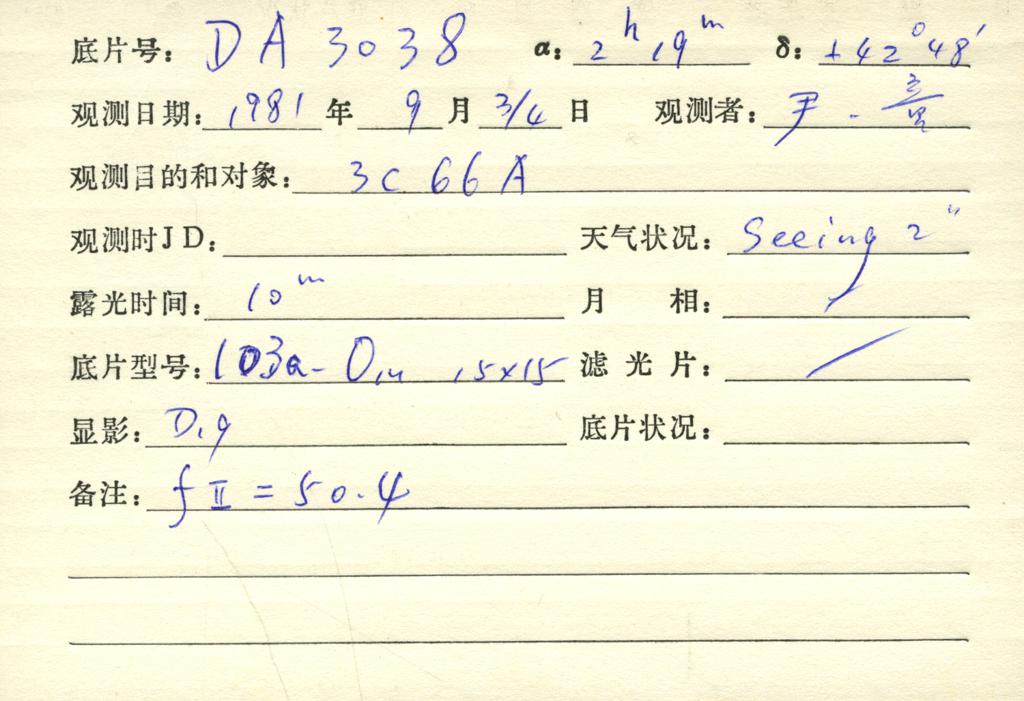 底片号: DA 3038 α: 2h 19m δ: +42°48′
观测日期: 1981 年 9 月 3/4 日 观测者: 尹.
观测目的和对象: 3C 66A
观测时JD: 天气状况: Seeing 2″
露光时间: 10m 月 相:
底片型号: 103a-O, 15×15 滤 光 片: /
显影: D19 底片状况:
备注: fII = 50.4